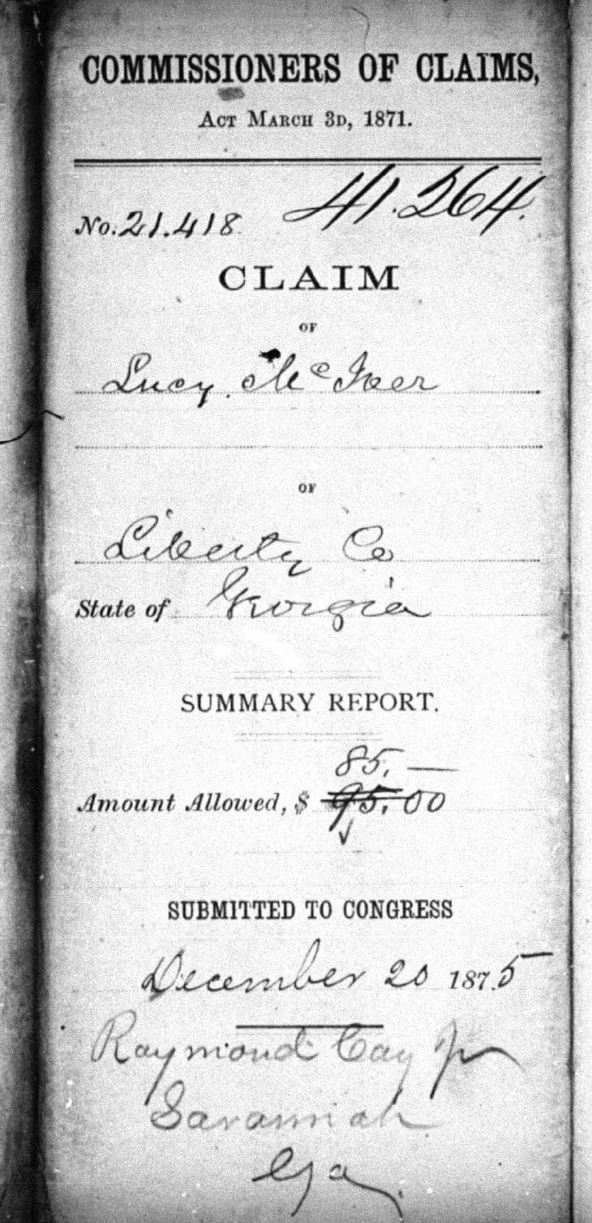 COMMISSIONERS OF CLAIMS,
ACT MARCH 3D, 1871.
No. 21.418 41.264.
CLAIM
OF
Lucy Mc Iver
OF
Liberty Co
State of Georgia
SUMMARY REPORT.
85. —
Amount Allowed, $ 95.00
SUBMITTED TO CONGRESS
December 20 1875
Raymond Cay Jr
Savannah
Ga.